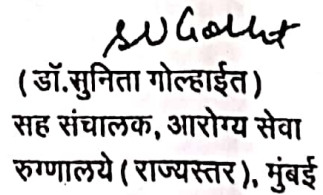 (डॉ.सुनिता गोल्हाईत)
सह संचालक, आरोग्य सेवा
रुग्णालये (राज्यस्तर), मुंबई